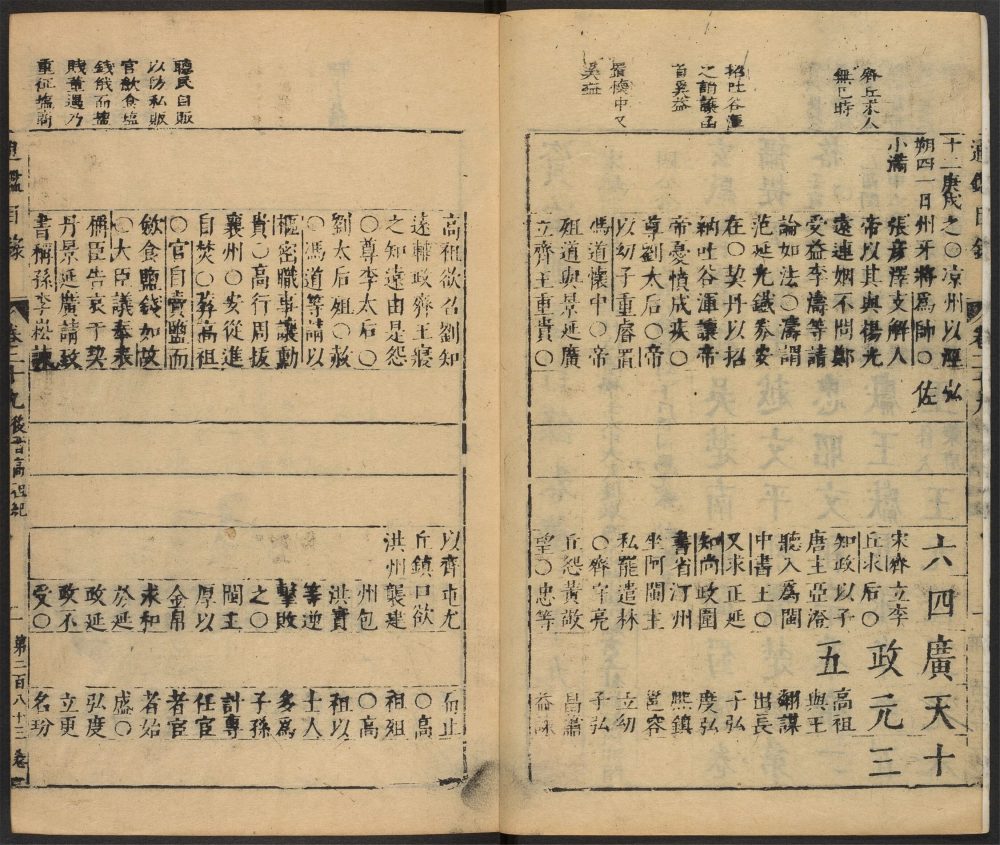 齊丘求入
無已時
招吐谷渾
懷中又
十二庚戌之○涼州以涇弘
朔四一日州牙將為帥○佐
小滿張彥澤支解人
帝以其與楊光
遠連姻不問鄭
受益李濤等請
論如法○濤謂
范延光鐵券安
在○契丹以招
納吐谷渾讓帝
帝憂憤成疾○
尊劉太后○帝
以幼子重睿置
馮道懷中○帝
殂道與景延廣
立齊王重貴○
六
四
廣天十
政元三
五
宋齊立李
丘求后○
知政以子
唐主亞澄
聽入為閩
中書王○
又求正延
知尚政圍
書省汀州
坐阿閩主
私罷遣林
○齊守亮
丘怨黃敬
望○忠等
高祖
與王
翻謀
出長
子弘
度弘
熙鎮
邕容
立幼
子弘
昌蕭
益諫
聽民自販
以 私販
官斂食塩
錢 而塩
賤 乃
重征塩商
高祖欲召劉知
遠輔政齊王寢
之知遠由是怨
○尊李太后○
劉太后殂○赦
○馮道等請以
樞密職事讓勳
貴○高行周拔
襄州○安從進
自焚○葬高祖
○官自賣鹽而
斂食鹽錢如故
○大臣議奉表
稱臣告哀于契
丹景延廣請致
書稱孫李崧諫
以齊市尤
丘鎮口欲
洪州襲建
州包
洪實
等逆
擊敗
之○
閩主
厚以
金帛
求和
於延
政延
政不
受○
而止
○高
祖殂
○高
祖以
士人
多為
子孫
計專
任宦
者宦
者始
盛○
弘度
立更
名玢
通鑑目錄 卷二十九 後晉高祖紀 一 第二百八十三卷